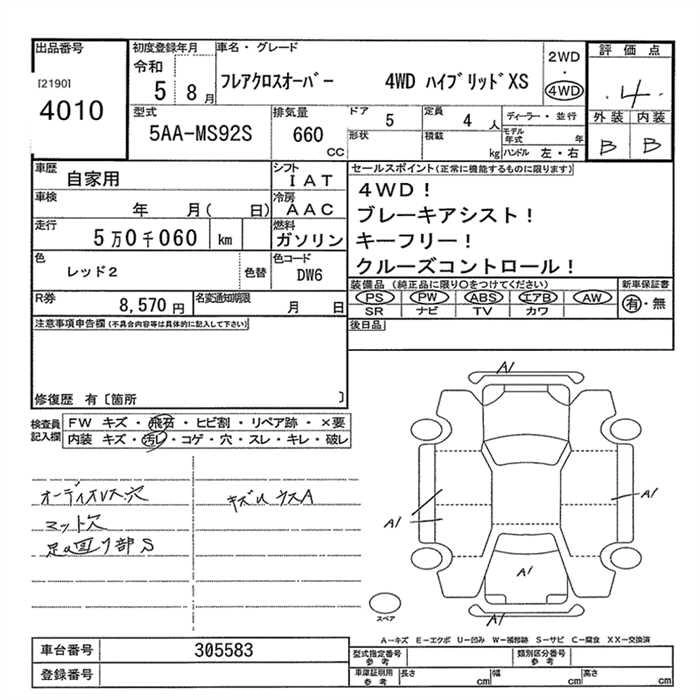 出品番号
[2190]
4010
初度登録年月
令和
5 8月
車名・グレード
フレアクロスオーバー 4WD ハイブリッドXS
2WD
・
4WD
評価点
4
外装 内装
B B
型式
5AA-MS92S
排気量
660
CC
ドア 5
定員 4 人
ディーラー・並行
形状
積載 kg
モデル年式 年
ハンドル 左・右
車歴
自家用
シフト
IAT
車検
年 月( 日)
冷房
AAC
走行
5万0千060 km
燃料
ガソリン
色
レッド2
色替
色コード
DW6
R券
8,570円
名変通知期限
月 日
セールスポイント(正常に機能するものに限ります)
4WD!
ブレーキアシスト!
キーフリー!
クルーズコントロール!
装備品 (純正品に限り〇をつけてください)
PS PW ABS エアB AW
SR ナビ TV カワ
新車保証書
有・無
後日品
注意事項申告欄(不具合内容等は具体的に記入して下さい)
修復歴 有〔箇所 〕
検査員
記入欄
FW キズ・飛石・ヒビ割・リペア跡・×要
内装 キズ・汚し・コゲ・穴・スレ・キレ・破レ
マット穴
足回り部S
A1
A1
A1
A1
A1
スペア
A-キズ E-エクボ U-凹み W-補修跡 S-サビ C-腐食 XX-交換済
車台番号
305583
登録番号
型式指定番号
参考
類別区分番号
参考
車庫証明用
参考
長さ cm
幅 cm
高さ cm